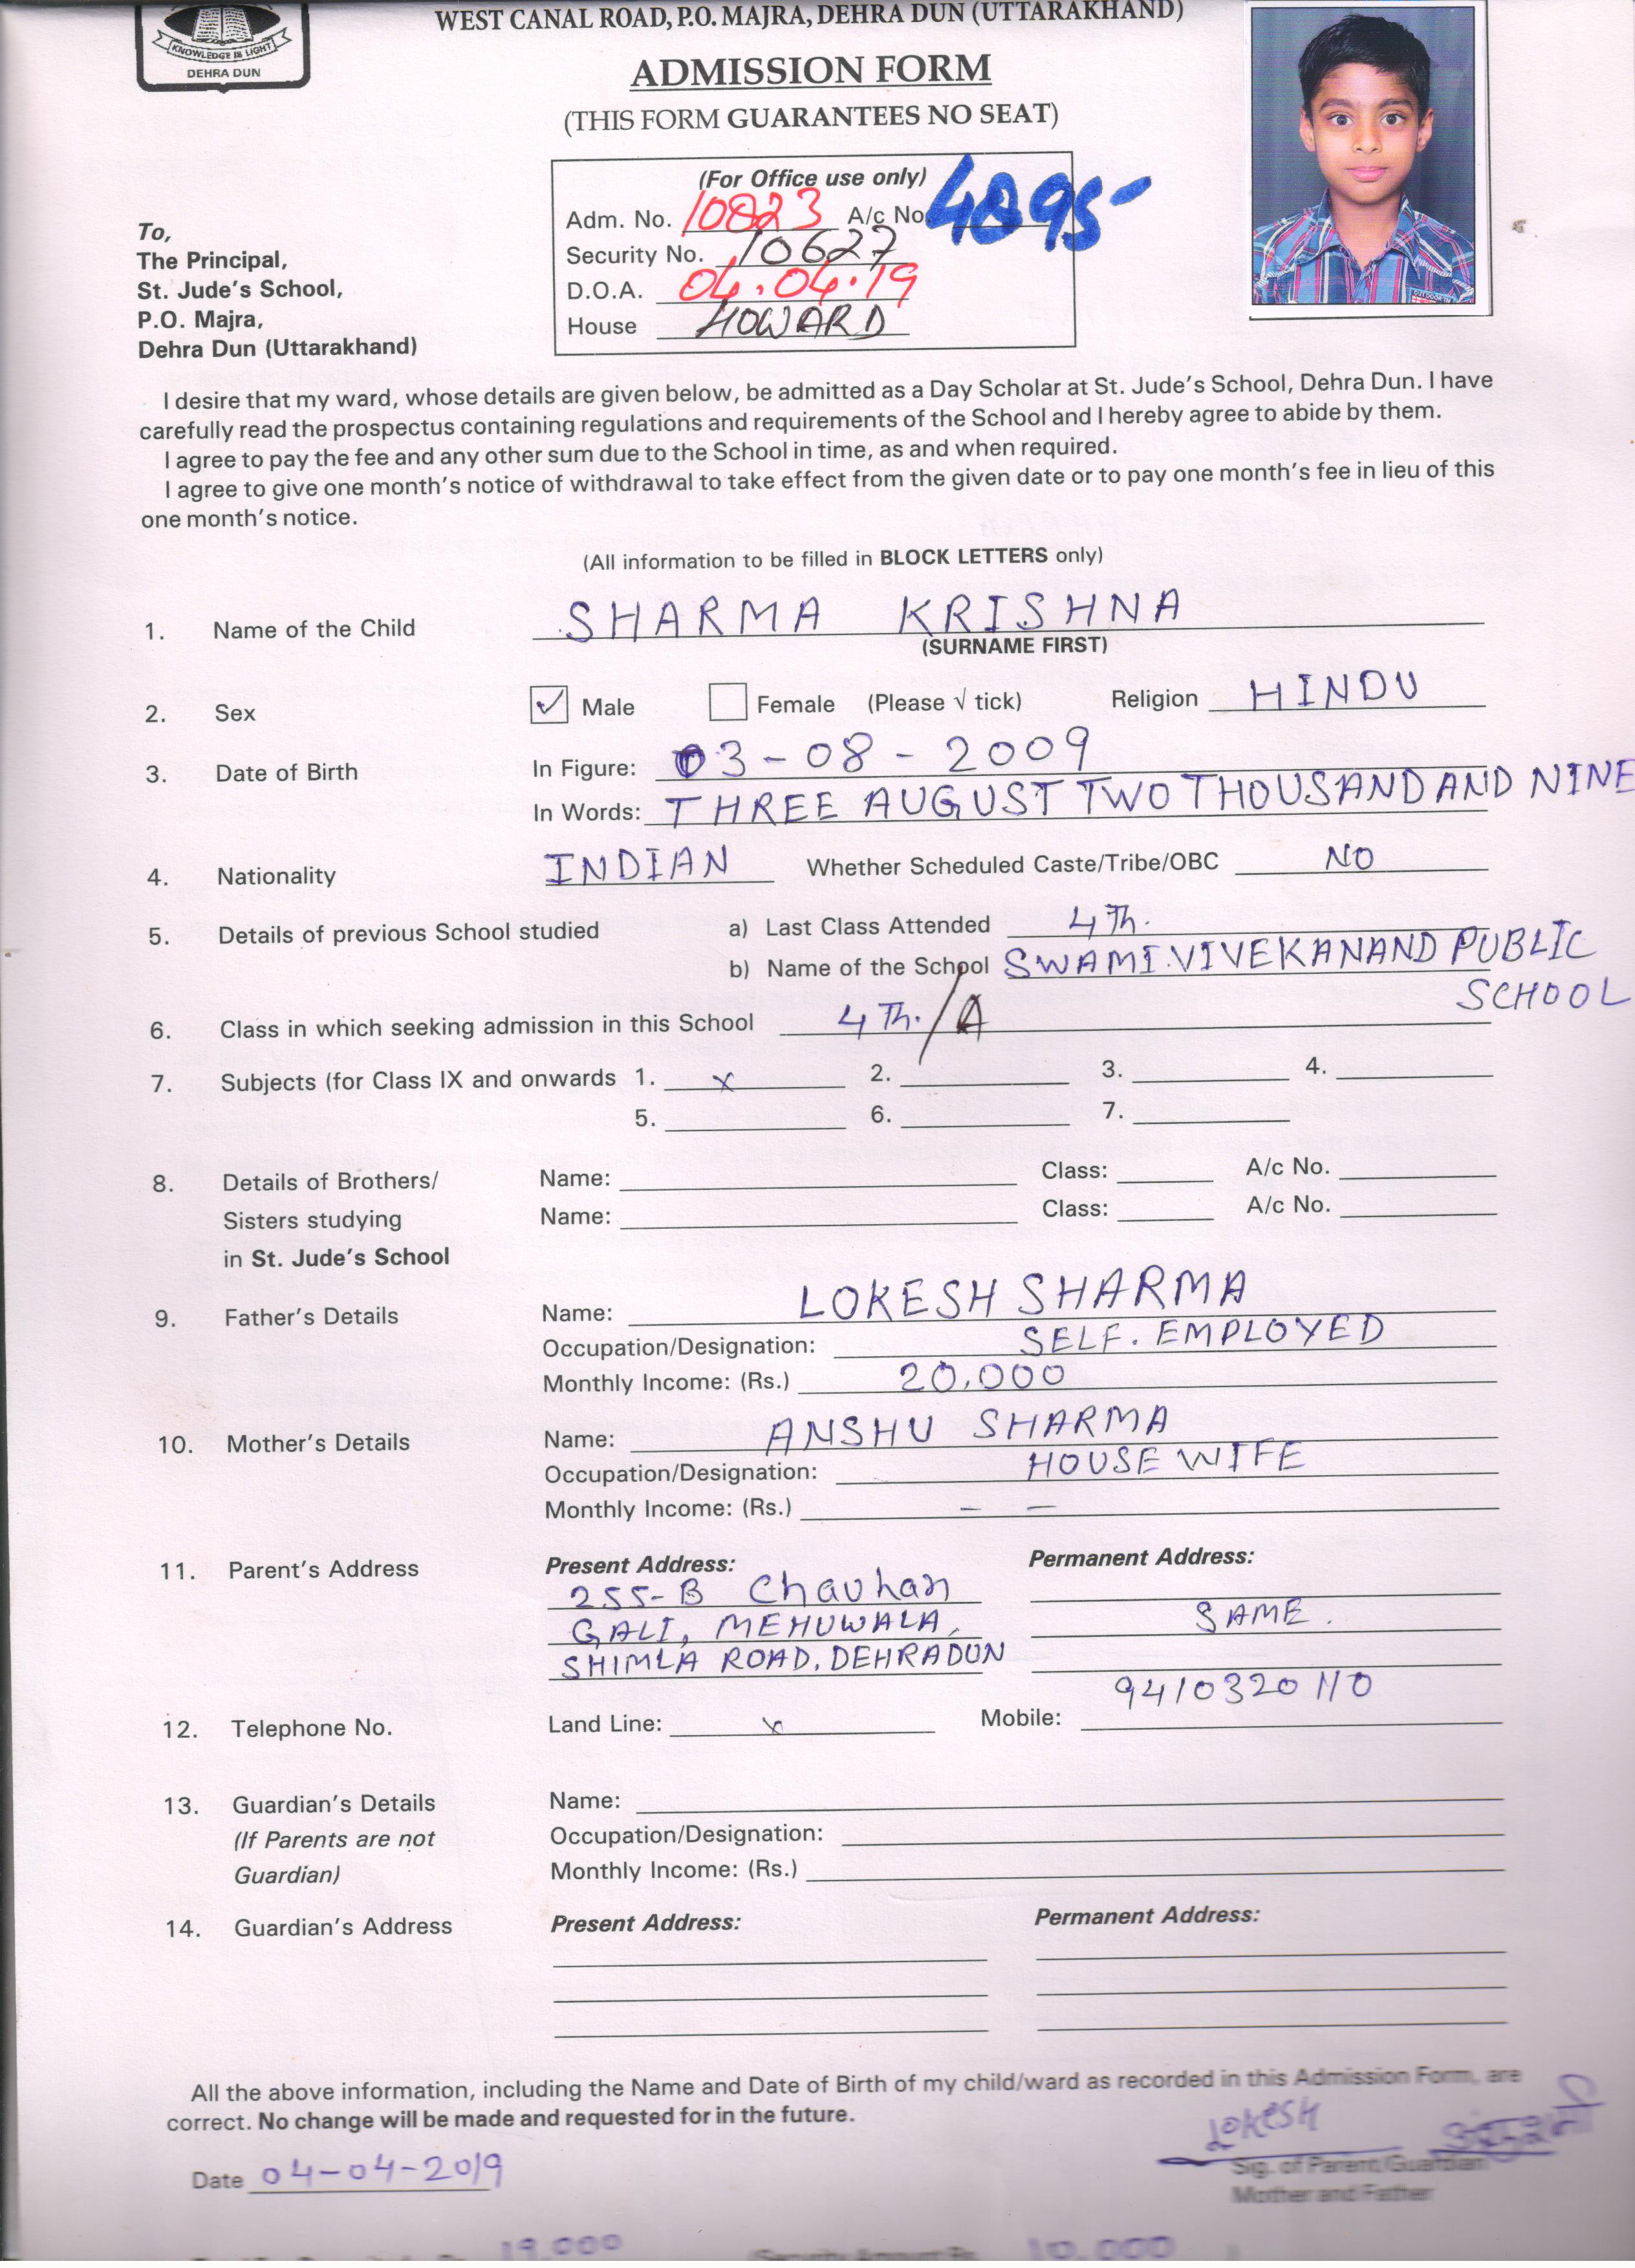 KNOWLEDGE IS LIGHT
DEHRA DUN
WEST CANAL ROAD, P.O. MAJRA, DEHRA DUN (UTTARAKHAND)
ADMISSION FORM
(THIS FORM GUARANTEES NO SEAT)
(For Office use only)
Adm. No. 10823 A/c No. 4895-
Security No. 10627
D.O.A. 04.04.19
House HOWARD
To,
The Principal,
St. Jude's School,
P.O. Majra,
Dehra Dun (Uttarakhand)
I desire that my ward, whose details are given below, be admitted as a Day Scholar at St. Jude's School, Dehra Dun. I have
carefully read the prospectus containing regulations and requirements of the School and I hereby agree to abide by them.
I agree to pay the fee and any other sum due to the School in time, as and when required.
I agree to give one month's notice of withdrawal to take effect from the given date or to pay one month's fee in lieu of this
one month's notice.
(All information to be filled in BLOCK LETTERS only)
1. Name of the Child SHARMA KRISHNA
(SURNAME FIRST)
2. Sex ✓ Male Female (Please √ tick) Religion HINDU
3. Date of Birth In Figure: 03-08-2009
In Words: THREE AUGUST TWO THOUSAND AND NINE
4. Nationality INDIAN Whether Scheduled Caste/Tribe/OBC NO
5. Details of previous School studied a) Last Class Attended 4Th.
b) Name of the School SWAMI.VIVEKANAND PUBLIC
SCHOOL
6. Class in which seeking admission in this School 4Th./A
7. Subjects (for Class IX and onwards 1. x 2. 3. 4.
5. 6. 7.
8. Details of Brothers/ Name: Class: A/c No.
Sisters studying Name: Class: A/c No.
in St. Jude's School
9. Father's Details Name: LOKESH SHARMA
Occupation/Designation: SELF. EMPLOYED
Monthly Income: (Rs.) 20,000
10. Mother's Details Name: ANSHU SHARMA
Occupation/Designation: HOUSE WIFE
Monthly Income: (Rs.) – –
11. Parent's Address Present Address: Permanent Address:
255-B Chauhan
GALI, MEHUWALA, SAME.
SHIMLA ROAD. DEHRADUN
12. Telephone No. Land Line: x Mobile: 9410320110
13. Guardian's Details Name:
(If Parents are not Occupation/Designation:
Guardian) Monthly Income: (Rs.)
14. Guardian's Address Present Address: Permanent Address:
All the above information, including the Name and Date of Birth of my child/ward as recorded in this Admission Form, are
correct. No change will be made and requested for in the future.
Lokesh
Date 04-04-2019 Sig. of Parent/Guardian
Mother and Father
19,000 Security Amount Rs. 10,000